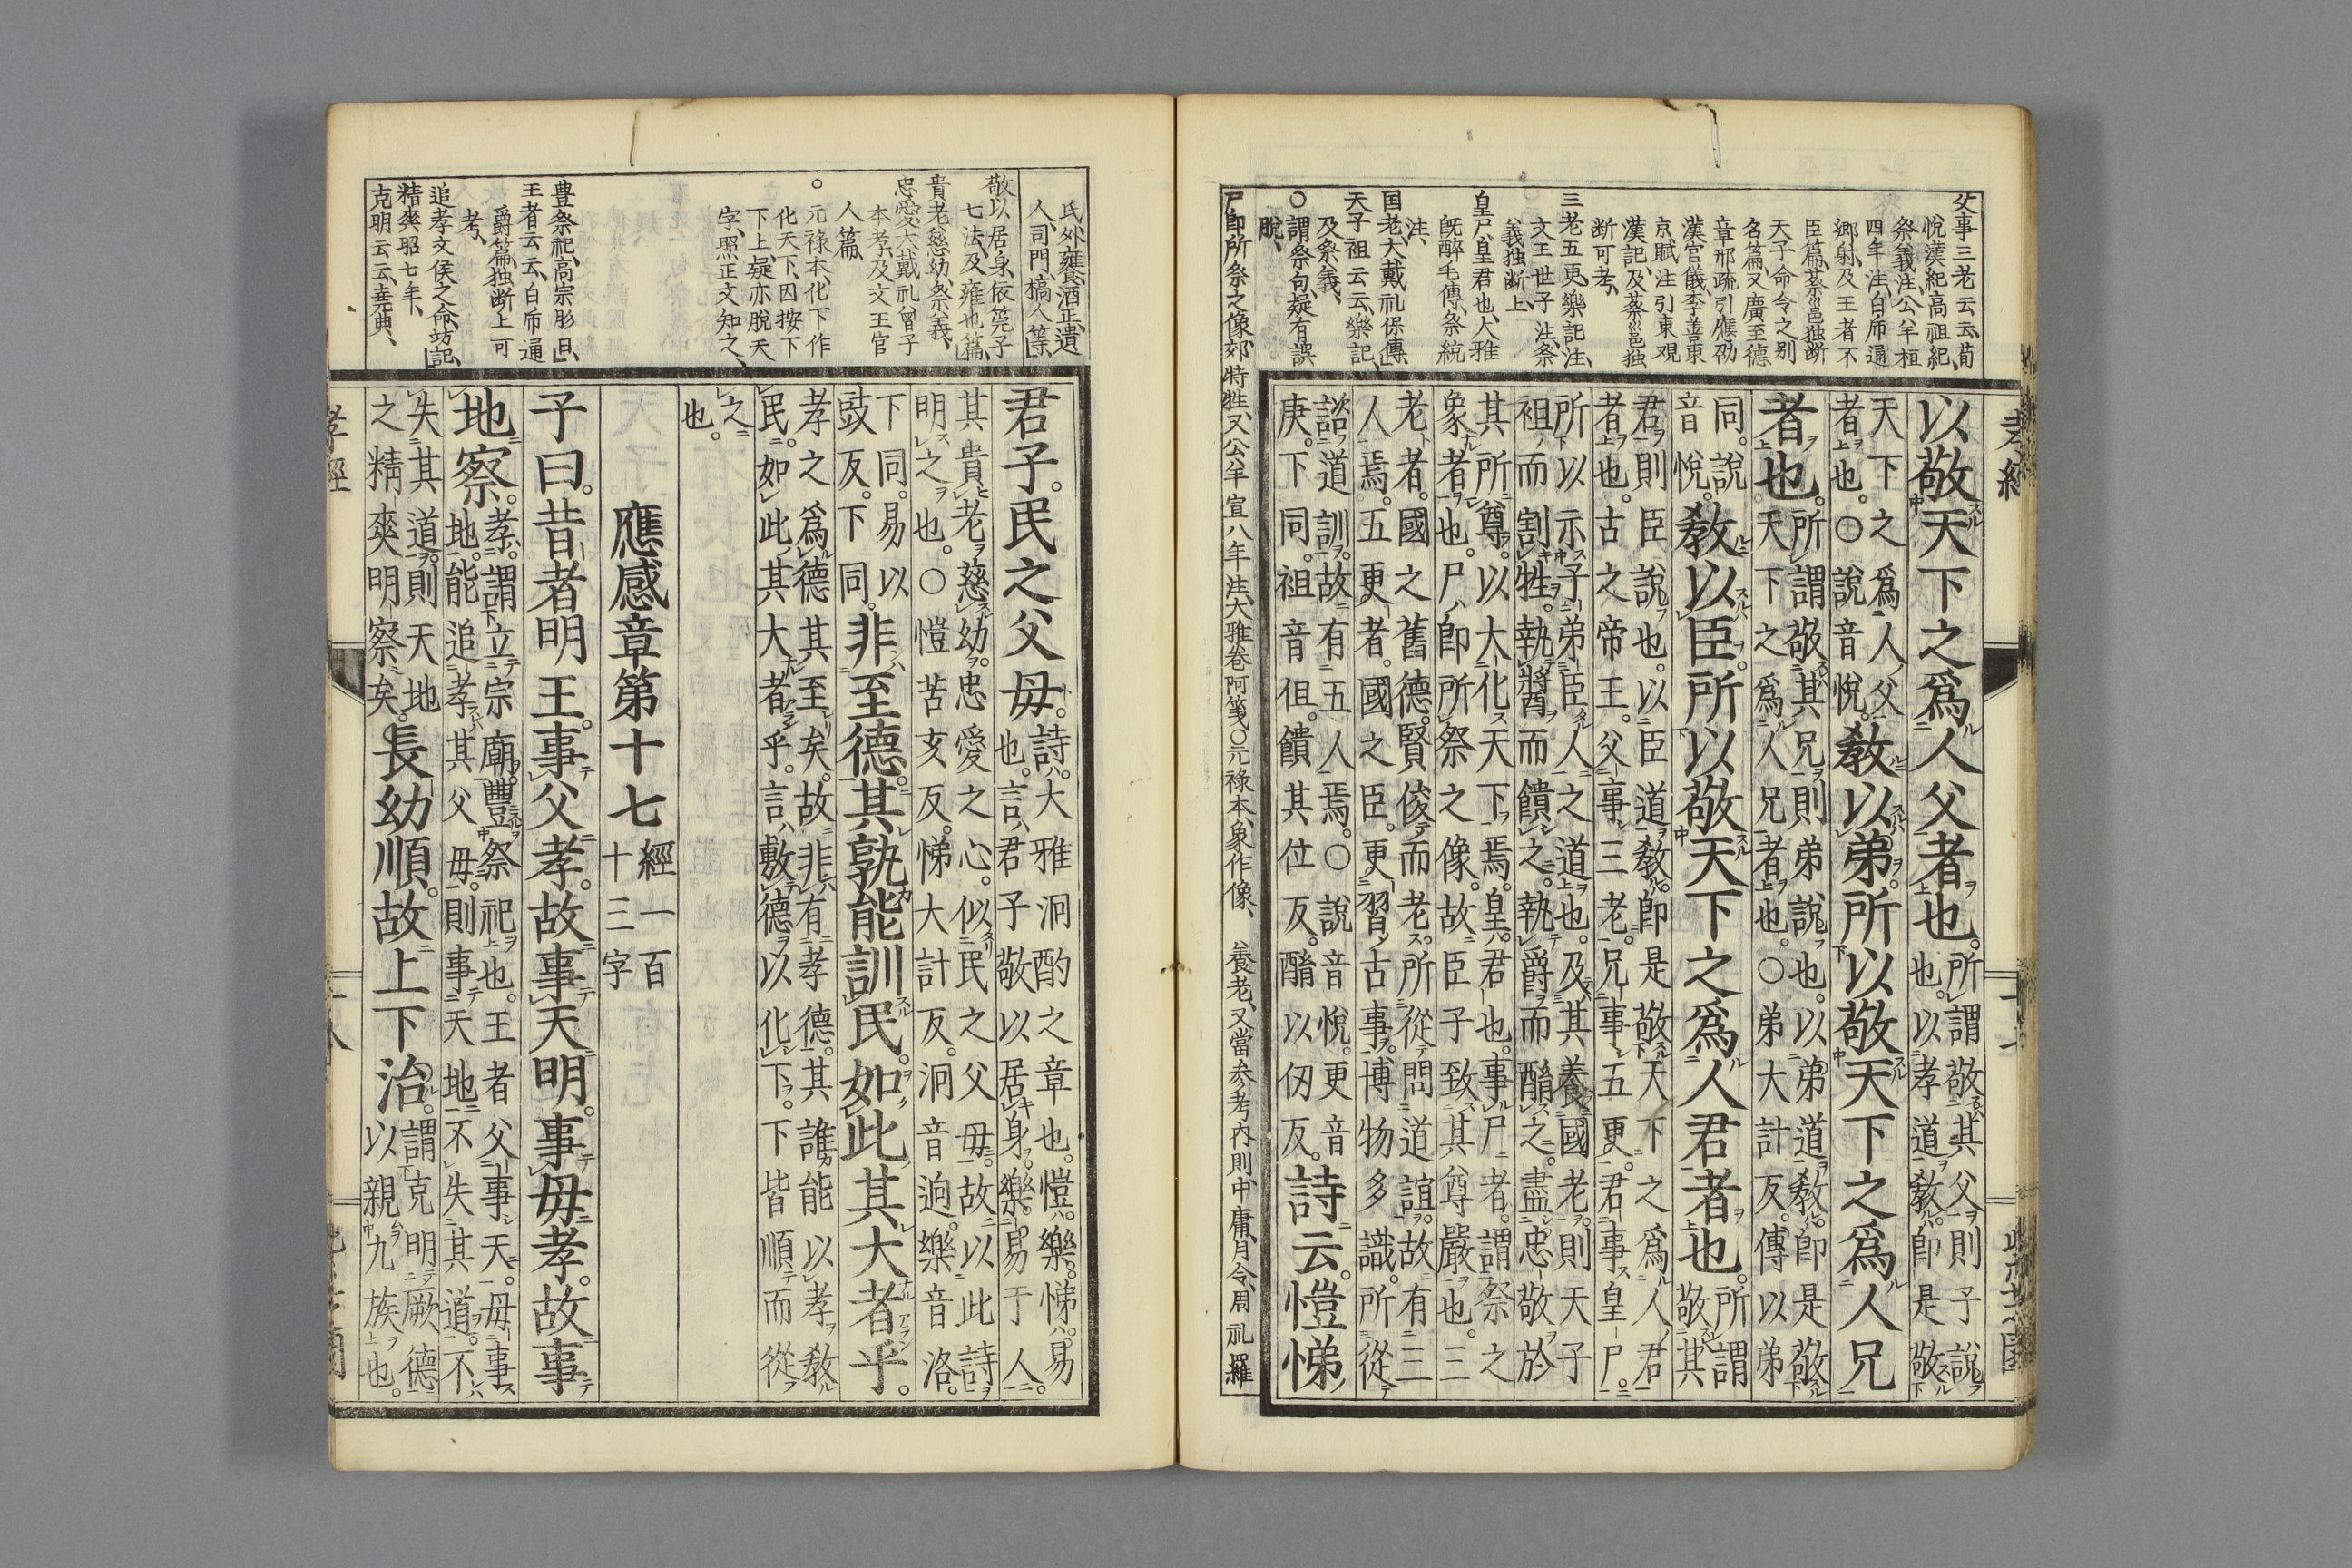 父事三老云云、荀
悦漢紀高祖紀、
祭義注公羊桓
四年注、白帋通
郷射、及王者不
臣篇、蔡邕独断
天子命令之別
名篇、又廣至德
章邢疏引應劭
漢官儀李善東
京賦注引東观
漢記、及蔡邕独
断可考、
三老五更、樂記注、
文王世子注、祭
義独断上、
皇尸皇君也、大雅
既醉毛傳、祭統
注、
国老、大戴礼保傅、
天子袒云云、樂記、
及祭義、
○謂祭句、疑有誤
脱、
尸即所祭之像、郊特牲、又公羊宣八年注、大雅卷阿箋、○元祿本象作像、養老、又當参考内則、中庸、月令、周礼羅
以敬天下之爲人父者也。所謂敬其父則子說
也。以孝道教。即是敬
天下之爲人父
者也。○說音悅。教以弟。所以敬天下之爲人兄
者也。所謂敬其兄則弟說也。以弟道教。即是敬
天下之爲人兄者也。○弟大計反。傳以弟
同。說
音悅。教以臣。所以敬天下之爲人君者也。所謂
敬其
君則臣說也。以臣道教。即是敬天下之爲人君
者也。古之帝王。父事三老。兄事五更。君事皇尸。
所以示子弟臣人之道也。及其養國老。則天子
袒而割牲。執醬而饋之。執爵而酳之。盡忠敬於
其所尊。以大化天下焉。皇。君也。事尸者。謂祭之
象者也。尸即所祭之像。故臣子致其尊嚴也。三
老者。國之舊德。賢俊而老。所從問道誼。故有三
人焉。五更者。國之臣。更習古事。博物多識。所從
諮道訓。故有五人焉。○說音悅。更音
庚。下同。袒音但。饋其位反。酳以仞反。詩云。愷悌
氏外饔、酒正、遺
人、司門、槁人等、
敬以居身、依筦子
七法、及雍也篇、
貴老慈幼、祭義、
忠愛、大戴礼曽子
本孝、及文王官
人篇、
○元祿本、化下作
化天下、因按下
下上、疑亦脱天
字、照正文知之、
豊祭祀、高宗肜日、
王者云云、白帋通
爵篇、独断上可
考、
追孝文侯之命、坊記、
精爽昭七年、
克明云云、堯典、
君子。民之父母。詩。大雅泂酌之章也。愷。樂。悌。易
也。言君子敬以居身。樂易于人。
其貴老慈幼。忠愛之心。似民之父母。故以此詩
明之也。○愷苦亥反。悌大計反。泂音逈。樂音洛。
下同。易以
豉反。下同。非至德。其孰能訓民。如此其大者乎。
孝之爲德其至矣。故非有孝德。其誰能以孝教
民。如此其大者乎。言敷德以化下。下皆順而從
之
也。
應感章第十七
經一百
十三字
子曰。昔者明王。事父孝。故事天明。事母孝。故事
地察。孝。謂立宗廟。豐祭祀也。王者父事天。母事
地。能追孝其父母。則事天地不失其道。不
失其道。則天地
之精爽明察矣。長幼順。故上下治。謂克明厥德
以親九族也。